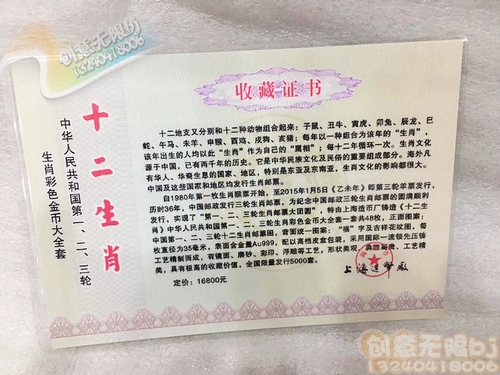 创意无限bj
13240418006
收藏证书
十二生肖
中华人民共和国第一、二、三轮
生肖彩色金币大全套
十二地支又分别和十二种动物组合起来：子鼠、丑牛、寅虎、卯兔、辰龙、巳
蛇、午马、未羊、申猴、酉鸡、戌狗、亥猪；每年以一种组合为该年的“生肖”，
该年出生的人均以此“生肖”作为自己的“属相”；每十二年循环一次。生肖文化
源于中国，已有两千年的历史。它是中华民族文化及民俗的重要组成部分。海外凡
有华人、华裔生息的国家、地区，特别是东亚及东南亚，生肖文化的影响都很大。
中国及这些国家和地区均发行生肖邮票。
自1980年第一枚生肖邮票开始，至2015年1月5日《乙未年》即第三轮羊票发行，
历时36年，中国邮政发行三轮生肖邮票。为纪念中国邮政三轮生肖邮票的圆满顺利
发行，实现了“第一、二、三轮生肖邮票大团圆”，特由上海造币厂铸造《十二生
肖》中华人民共和国第一、二、三轮生肖彩色金币大全套一套共48枚，正面图案：
中国第一、二、三轮十二生肖邮票图，背面统一图案：“福”字及吉祥花纹图，每
枚直径为35毫米，表面含金量Au999，配以高档皮盒包装，采用国际一流领先压铸
工艺精制而成，有镜面、磨砂、彩印、浮雕等工艺，形状美观，典雅精美，工艺精
美，具有极高的收藏价值，全国限量发行5000套。
定价：16800元
上海造币厂
创意无限bj
13240418006